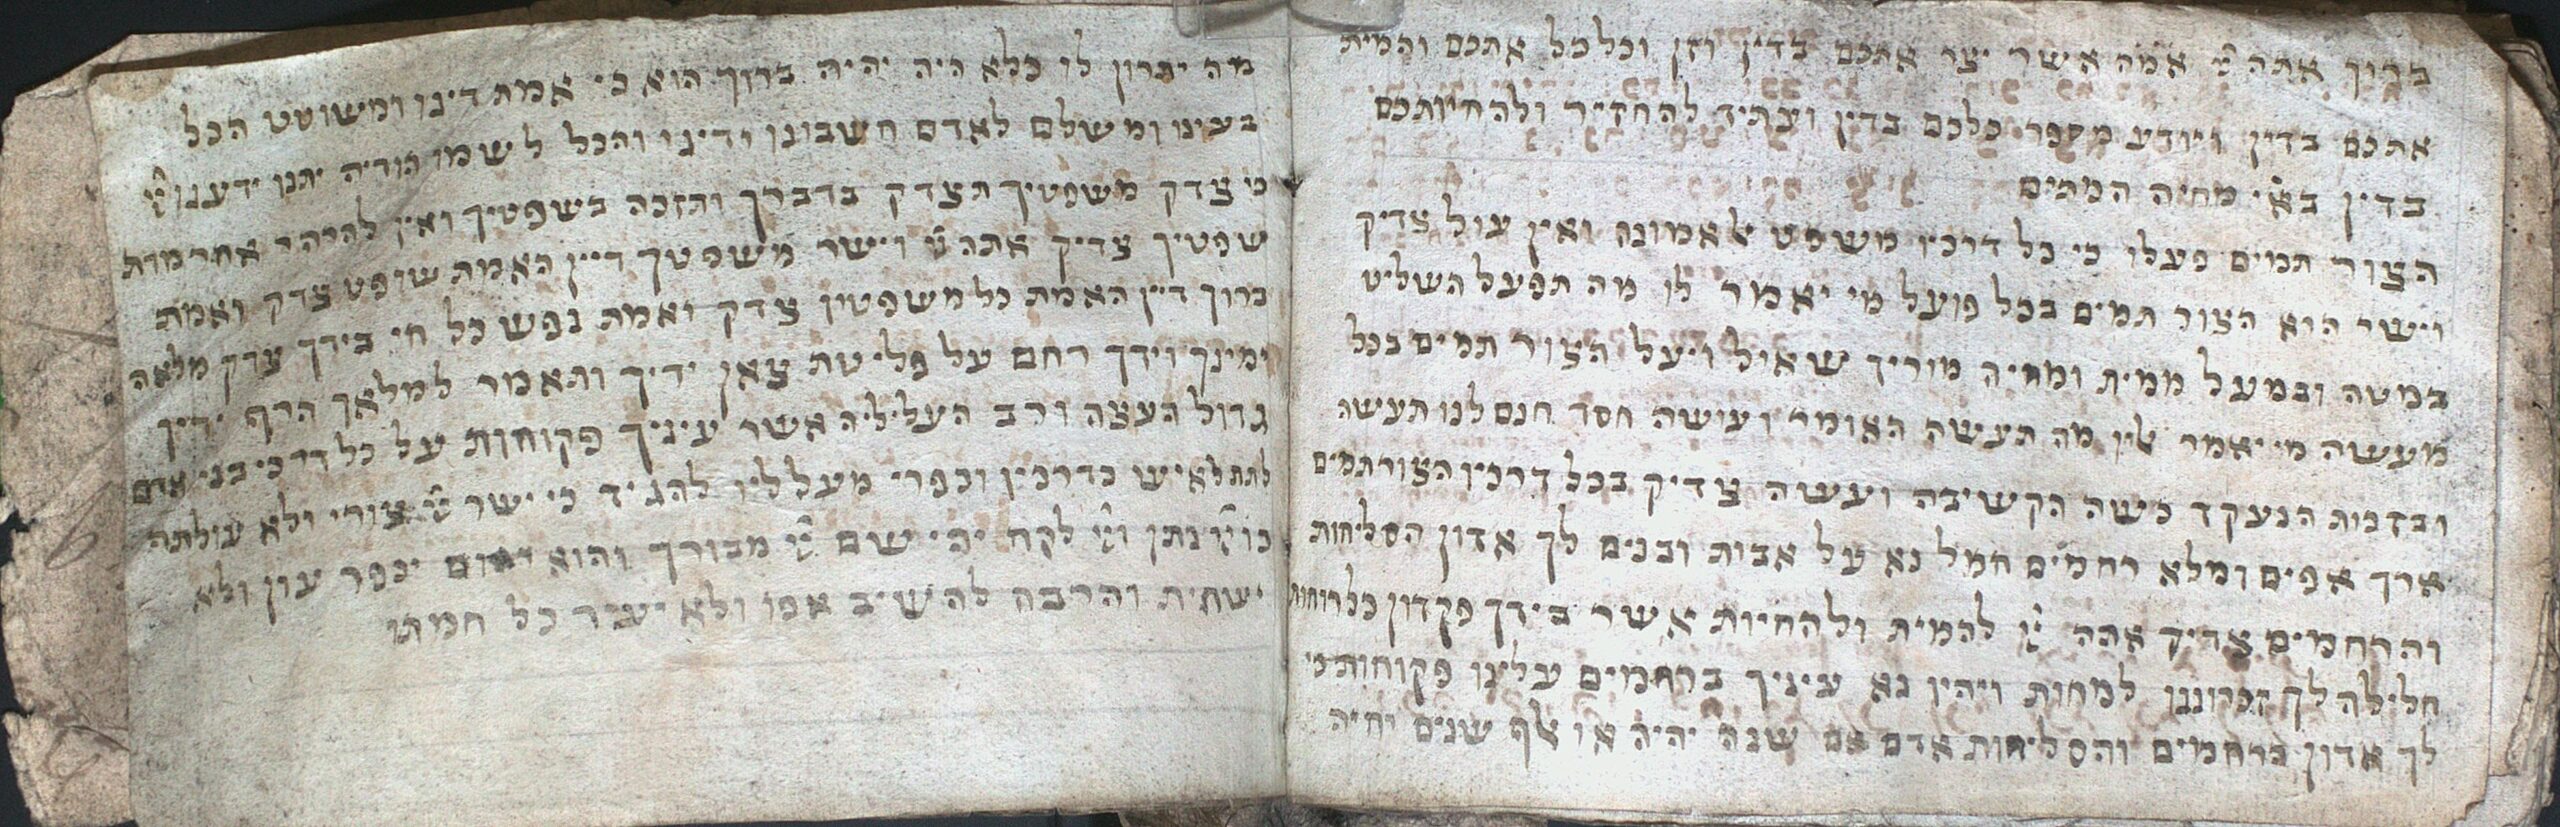 ברוך אתה יי אמה אשר יצר אתכם בדין וזן וכלכל אתכם והמית
אתכם בדין ויודע מספר כלכם בדין ועתיד להחזיר ולהחיותכם
בדין בא״י מחיה המתים
הצור תמים פעלו כי כל דרכיו משפט אל אמונה ואין עול צדיק
וישר הוא הצור תמים בכל פועל מי יאמר לו מה תפעל השליט
במטה ובמעל ממית ומחיה מוריד שאול ויעל הצור תמים בכל
מעשה מי יאמר אליו מה תעשה האומר ועושה חסד חנם לנו תעשה
ובזכות הנעקד כשה הקשיבה ועשה צדיק בכל דרכיו הצור תמים
ארך אפים ומלא רחמים חמל נא על אבות ובנים לך אדון הסליחות
והרחמים צדיק אתה יי להמית ולהחיות אשר בידך פקדון כל רוחות
חלילה לך זכרוננו למחות ויהיו נא עיניך ברחמים עלינו פקוחות כי
לך אדון הרחמים והסליחות אדם אם שנה יהיה או אלף שנים יחיה
מה יתרון לו כלא היה יהיה ברוך הוא כי אמת דינו ומשוטט הכל
בעינו ומשלם לאדם חשבונו ודינו והכל לשמו הודיה יתנו ידענו יי
כי צדק משפטיך תצדק בדברך ותזכה בשפטיך ואין להרהר אחר מדת
שפטיך צדיק אתה יי וישר משפטך דיין האמת שופט צדק ואמת
ברוך דיין האמת כל משפטיו צדק ואמת נפש כל חי בידך צדק מלאה
ימינך וידך רחם על פליטת צאן ידיך ותאמר למלאך הרף ידיך
גדול העצה ורב העליליה אשר עיניך פקוחות על כל דרכי בני אדם
לתת לאיש כדרכיו וכפרי מעלליו להגיד כי ישר יי צורי ולא עולתה
בו יי נתן ויי לקח יהי שם יי מבורך והוא רחום יכפר עון ולא
ישחית והרבה להשיב אפו ולא יעיר כל חמתו